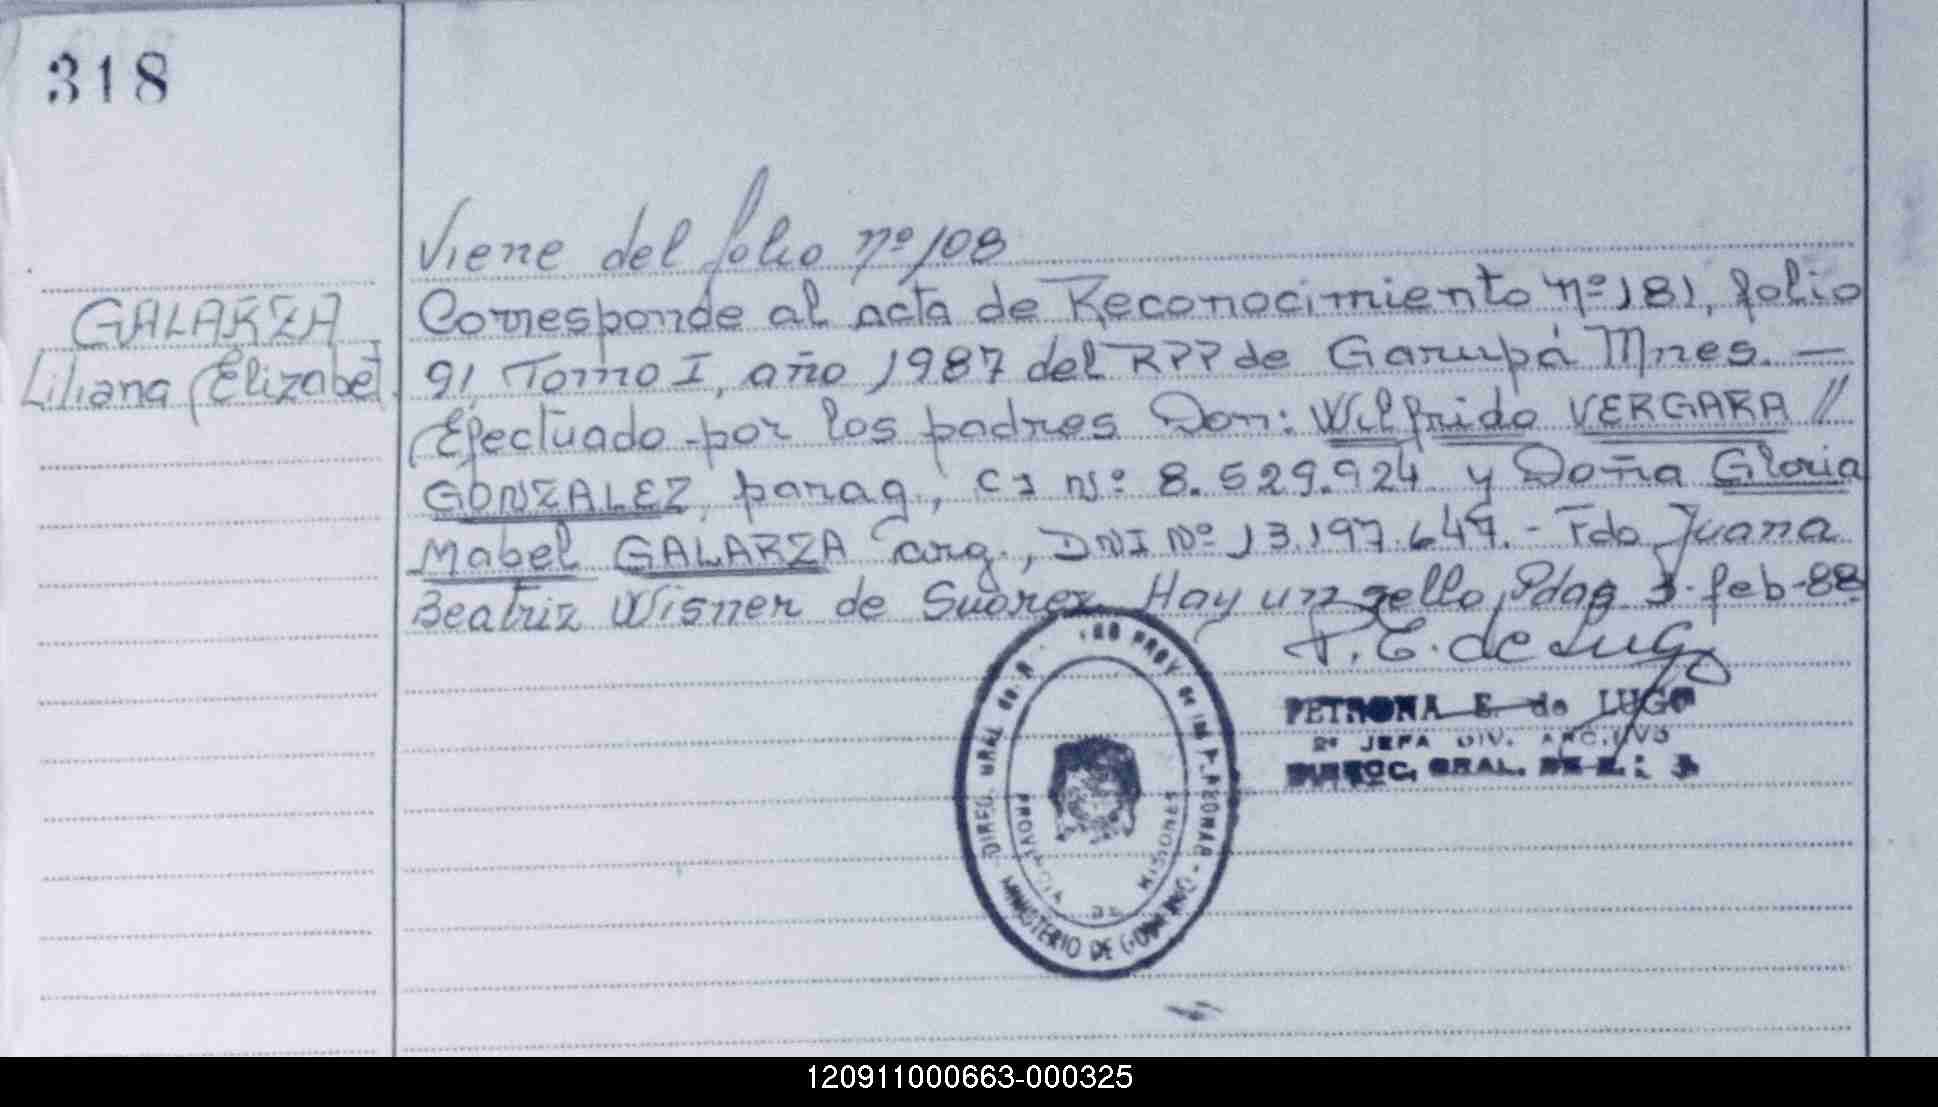 318
Viene del folio nº 108
GALARZA
Liliana Elizabet.
Corresponde al acta de Reconocimiento nº 181, folio
91, Tomo I, año 1987 del RPP de Garupá Mnes. —
Efectuado por los padres Don: Wilfrido VERGARA //
GONZALEZ, parag., CI Nº 8.529.924 y Doña Gloria
Mabel GALARZA arg., DNI Nº 13.197.649.- Fdo Juana
Beatriz Wisner de Suárez. Hay un sello, Pdas 3-feb-88
P. E. de Lugo
PETRONA E. de LUGO
2º JEFA DIV. ARCHIVO
GRAL.
DIREC. GRAL de
PROV de
MINISTERIO DE GOBIERNO
PROVINCIA DE MISIONES
120911000663-000325